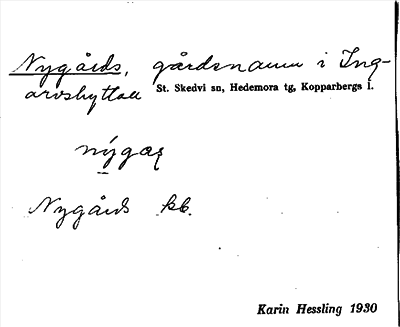 Nygårds, gårdsnamn i Ing-
arvshyttan St. Skedvi sn, Hedemora tg, Kopparbergs l.
Nygårds kb.
Karin Hessling 1930